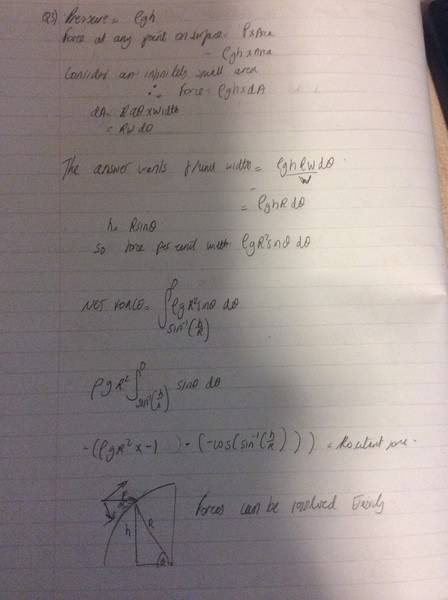 Q3) Pressure = ρgh
Force at any point on surface = P x Area
= ρgh x Area
Consider an infinitely small area
∴ Force = ρgh x dA
dA = R dθ x width
= RW dθ
The answer wants f/unit width = ρgh RW dθ / W
= ρgh R dθ
h = R sinθ
So force per unit width ρgR² sinθ dθ
NET FORCE = ∫ ρgR² sinθ dθ
sin⁻¹(h/R)
ρgR² ∫ sinθ dθ
-(ρgR² x -1 ) - (-cos(sin⁻¹(h/R))) = Resultant force.
Forces can be resolved
R
h
θ